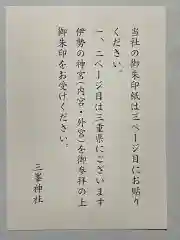 当社の御朱印紙は三ページ目にお貼り
ください。
一、二ページ目は三重県にございます
伊勢の神宮(内宮・外宮)を御参拝の上
御朱印をお受けください。
三峯神社